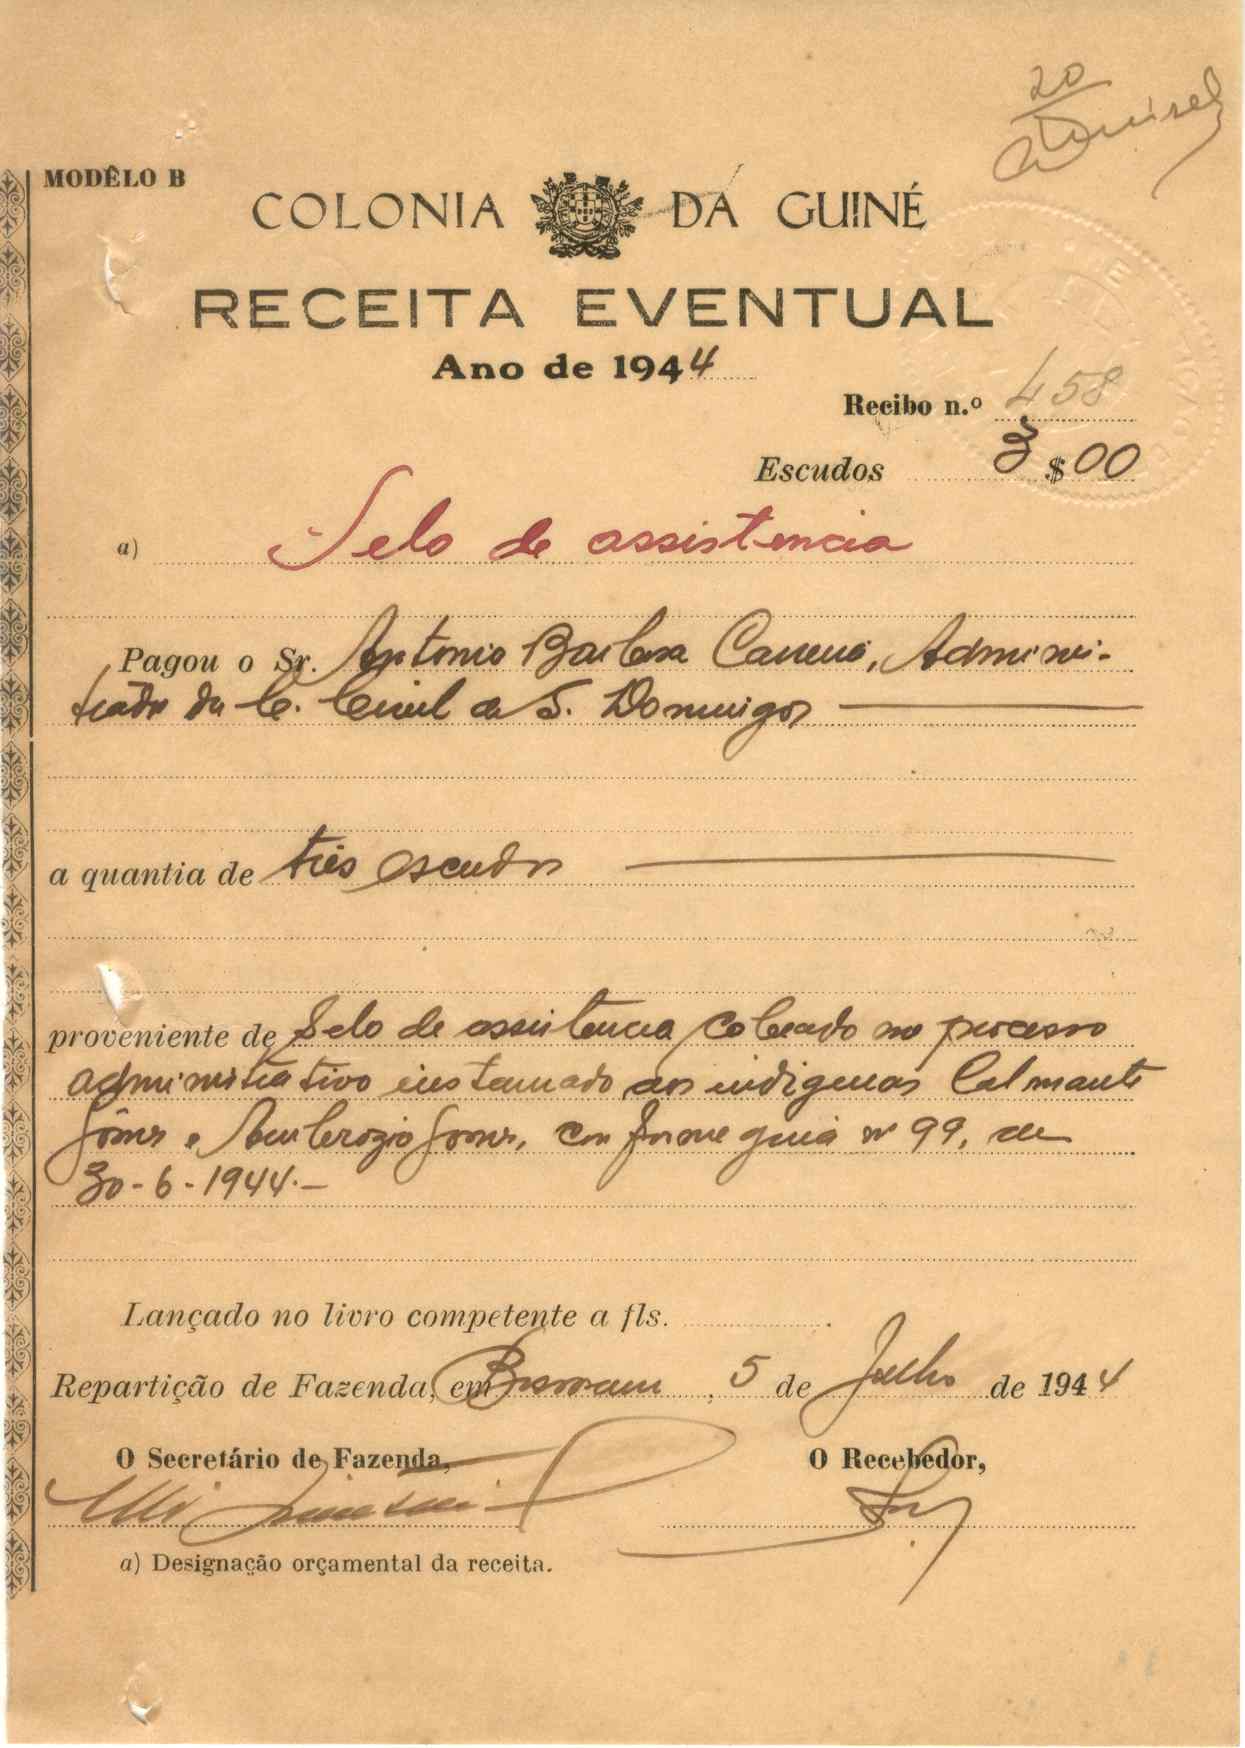 20
MODÊLO B
COLONIA DA GUINÉ
RECEITA EVENTUAL
Ano de 1944
Recibo n.º 458
Escudos 3$00
a) Selo de assistencia
Pagou o Sr. Antonio Barbosa Carreira, Adminis-
trador da C. Civil de S. Domingos
a quantia de três escudos
proveniente de Selo de assistencia cobrado no processo
administrativo instaurado aos indigenas Calmante
Gomes e Ambrozio Gomes, conforme guia nº 99, de
30-6-1944.-
Lançado no livro competente a fls.
Repartição de Fazenda, em Bissau, 5 de Julho de 1944
O Secretário de Fazenda,
O Recebedor,
a) Designação orçamental da receita.